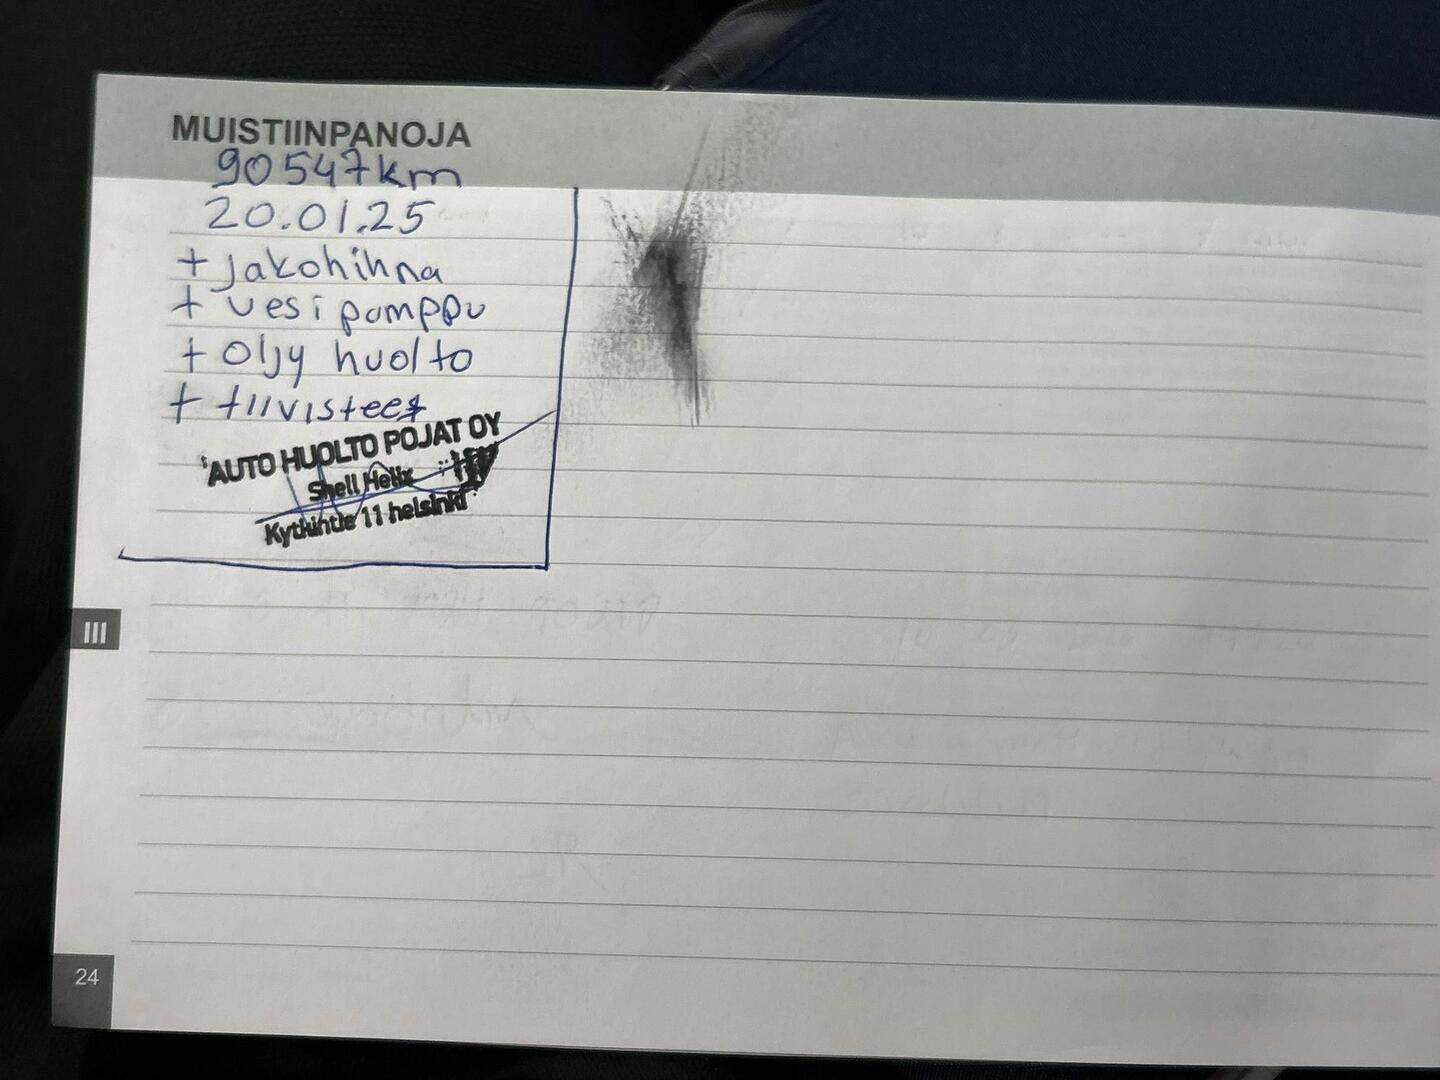 MUISTIINPANOJA
90547km
20.01.25
+ jakohihna
+ vesi pomppu
+ oljy huolto
+ tiivisteet
AUTO HUOLTO POJAT OY
Shell Helix
Kytkintie 11 helsinki
III
24